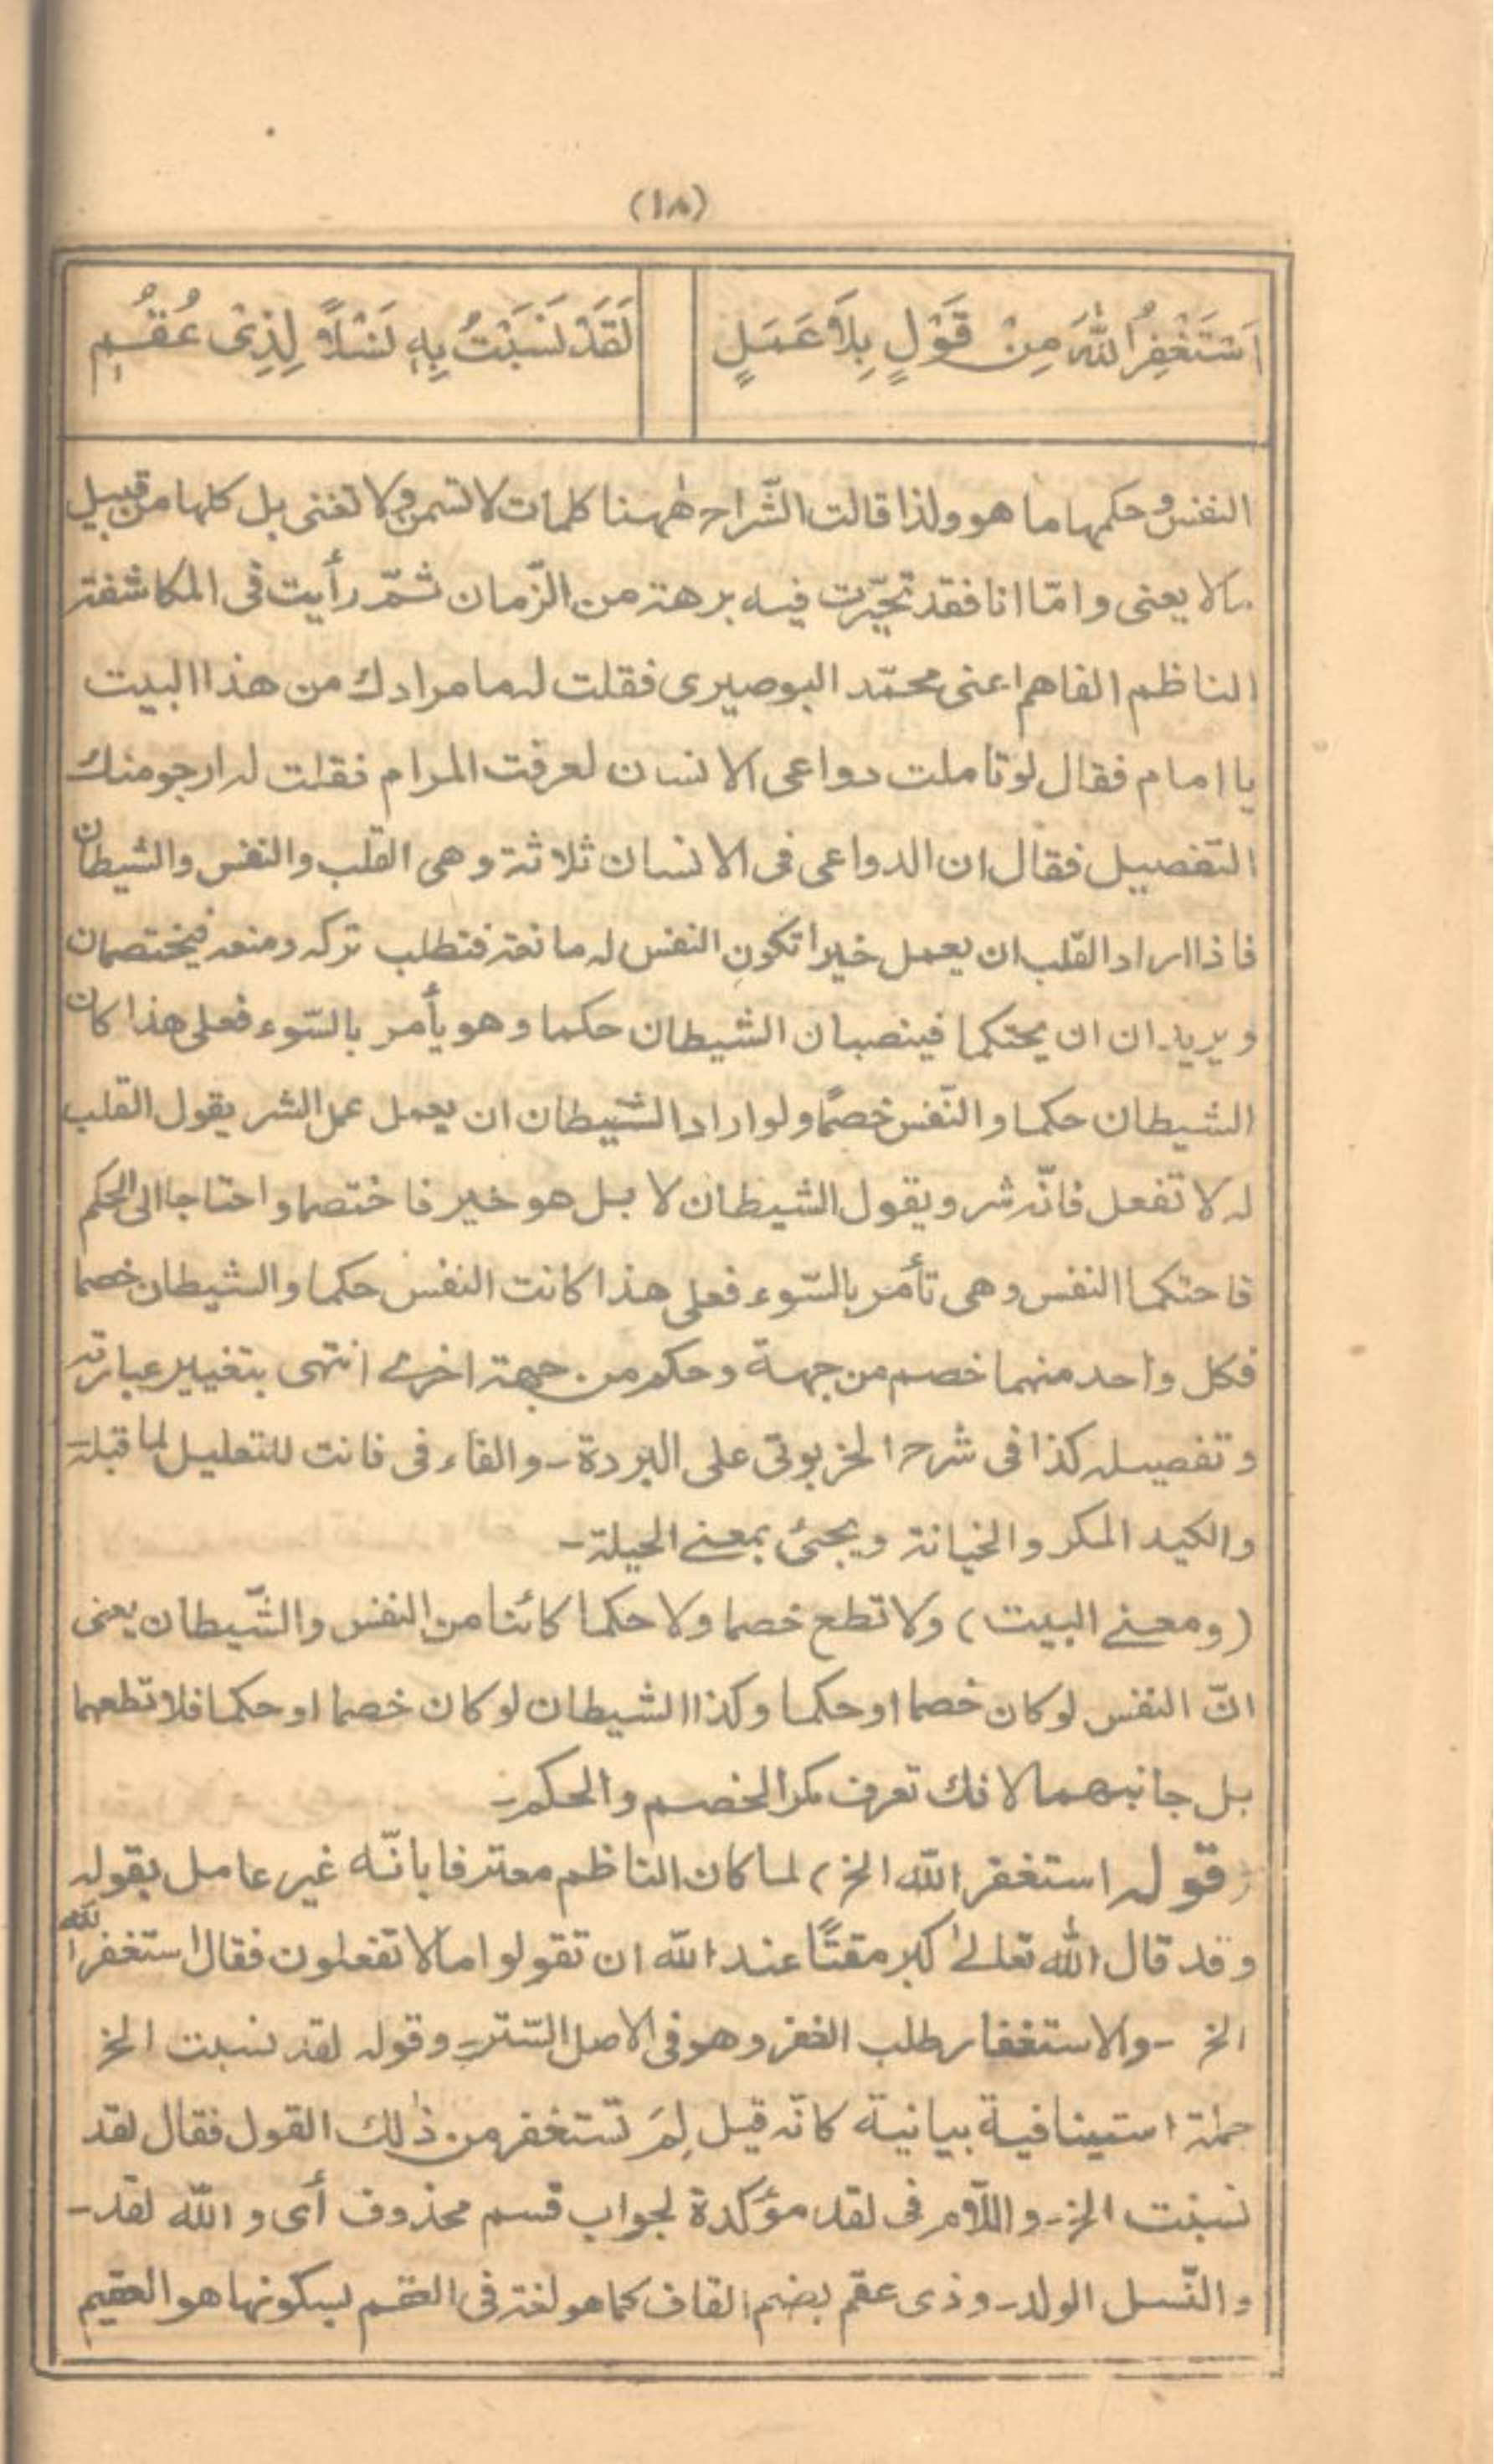 (١٨)
اَسْتَغْفِرُ اللّٰهَ مِنْ قَوْلٍ بِلَا عَمَلٍ
لَقَدْ نَسَبْتُ بِهٖ نَسْلًا لِذِىْ عُقُمٖ
النفس وحكمها ما هو ولذا قالت الشّراح ههنا كلمات لا تسمن ولا تغنى بل كلها من قبيل
مالا يعنى وامّا انا فقد تحيّرت فيه برهة من الزّمان ثمّ رأيت فى المكاشفة
الناظم الفاهم اعنى محمّد البوصيرى فقلت له ما مرادك من هذا البيت
يا امام فقال لو تاملت دواعى الانسان لعرفت المرام فقلت له ارجو منك
التفصيل فقال ان الدواعى فى الانسان ثلاثة وهى القلب والنفس والشيطان
فاذا اراد القلب ان يعمل خيرا تكون النفس له مانعة فتطلب تركه ومنعه فيختصمان
ويريدان ان يحتكما فينصبان الشيطان حكما وهو يأمر بالسّوء فعلى هذا كان
الشيطان حكما والنّفس خصمًا ولو اراد الشيطان ان يعمل عمل الشر يقول القلب
له لا تفعل فانّه شر ويقول الشيطان لا بل هو خير فاختصما واحتاجا الى الحكم
فاحتكما النفس وهى تأمر بالسّوء فعلى هذا كانت النفس حكما والشيطان خصما
فكل واحد منهما خصم من جهة وحكم من جهة اخرى انتهى بتغيير عبارته
وتفصيله كذا فى شرح الخربوتى على البردة ـ والفاء فى فانت للتعليل لما قبله ـ
والكيد المكر والخيانة ويجئ بمعنى الحيلة ـ
(ومعنى البيت) ولا تطع خصما ولا حكما كائنا من النفس والشّيطان يعنى
انّ النفس لو كان خصما او حكما وكذا الشيطان لو كان خصما او حكما فلا تطعهما
بل جانبهما لانك تعرف مكر الخصم والحكم ـ
(قوله استغفر الله الخ) لما كان الناظم معترفا بانّه غير عامل بقوله
وقد قال اللّٰه تعالى كبر مقتًا عند الله ان تقولوا مالا تفعلون فقال استغفر الله
الخ ـ والاستغفار طلب الغفر وهو فى الاصل السّتر ـ وقوله لقد نسبت الخ
جملة استينافية بيانية كانّه قيل لِمَ تستغفر من ذٰلك القول فقال لقد
نسبت الخ ـ واللّام فى لقد مؤكدة لجواب قسم محذوف أى و الله لقد ـ
والنّسل الولد ـ وذى عقم بضم القاف كما هو لغة فى العقم بسكونها هو العقيم